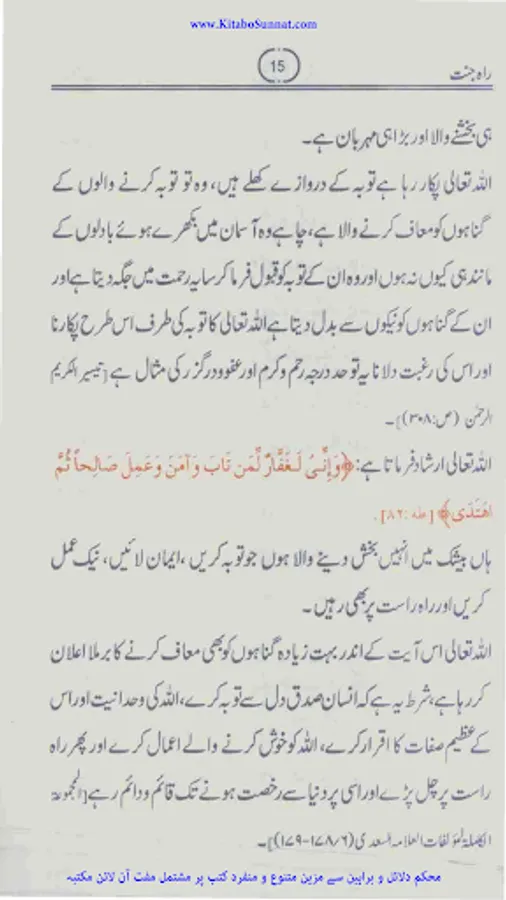 www.KitaboSunnat.com
راہ جنت
15
ہی بخشنے والا اور بڑا ہی مہربان ہے۔
اللہ تعالی پکار رہا ہے توبہ کے دروازے کھلے ہیں، وہ تو توبہ کرنے والوں کے
گناہوں کو معاف کرنے والا ہے، چاہے وہ آسمان میں بکھرے ہوئے بادلوں کے
مانند ہی کیوں نہ ہوں اور وہ ان کے توبہ کو قبول فرما کر سایہ رحمت میں جگہ دیتا ہے اور
ان کے گناہوں کو نیکوں سے بدل دیتا ہے اللہ تعالی کا توبہ کی طرف اس طرح پکارنا
اور اس کی رغبت دلانا یہ تو حد درجہ رحم و کرم اور عفو و درگزر کی مثال ہے [تیسیر الکریم
الرحمٰن (ص:۳۰۸)]۔
اللہ تعالی ارشاد فرماتا ہے: ﴿وَإِنِّیْ لَغَفَّارٌ لِّمَن تَابَ وَآمَنَ وَعَمِلَ صَالِحاً ثُمَّ
اهْتَدَى﴾ [طه :۸۲].
ہاں بیشک میں انہیں بخش دینے والا ہوں جو توبہ کریں، ایمان لائیں، نیک عمل
کریں اور راہ راست پر بھی رہیں۔
اللہ تعالی اس آیت کے اندر بہت زیادہ گناہوں کو بھی معاف کرنے کا برملا اعلان
کر رہا ہے، شرط یہ ہے کہ انسان صدق دل سے توبہ کرے، اللہ کی وحدانیت اور اس
کے عظیم صفات کا اقرار کرے، اللہ کو خوش کرنے والے اعمال کرے اور پھر راہ
راست پر چل پڑے اور اسی پر دنیا سے رخصت ہونے تک قائم و دائم رہے [المجموعۃ
الکاملۃ لمؤلفات العلامہ السعدی (۶/۱۷۸-۱۷۹)]۔
محکم دلائل و براہین سے مزین متنوع و منفرد کتب پر مشتمل مفت آن لائن مکتبہ